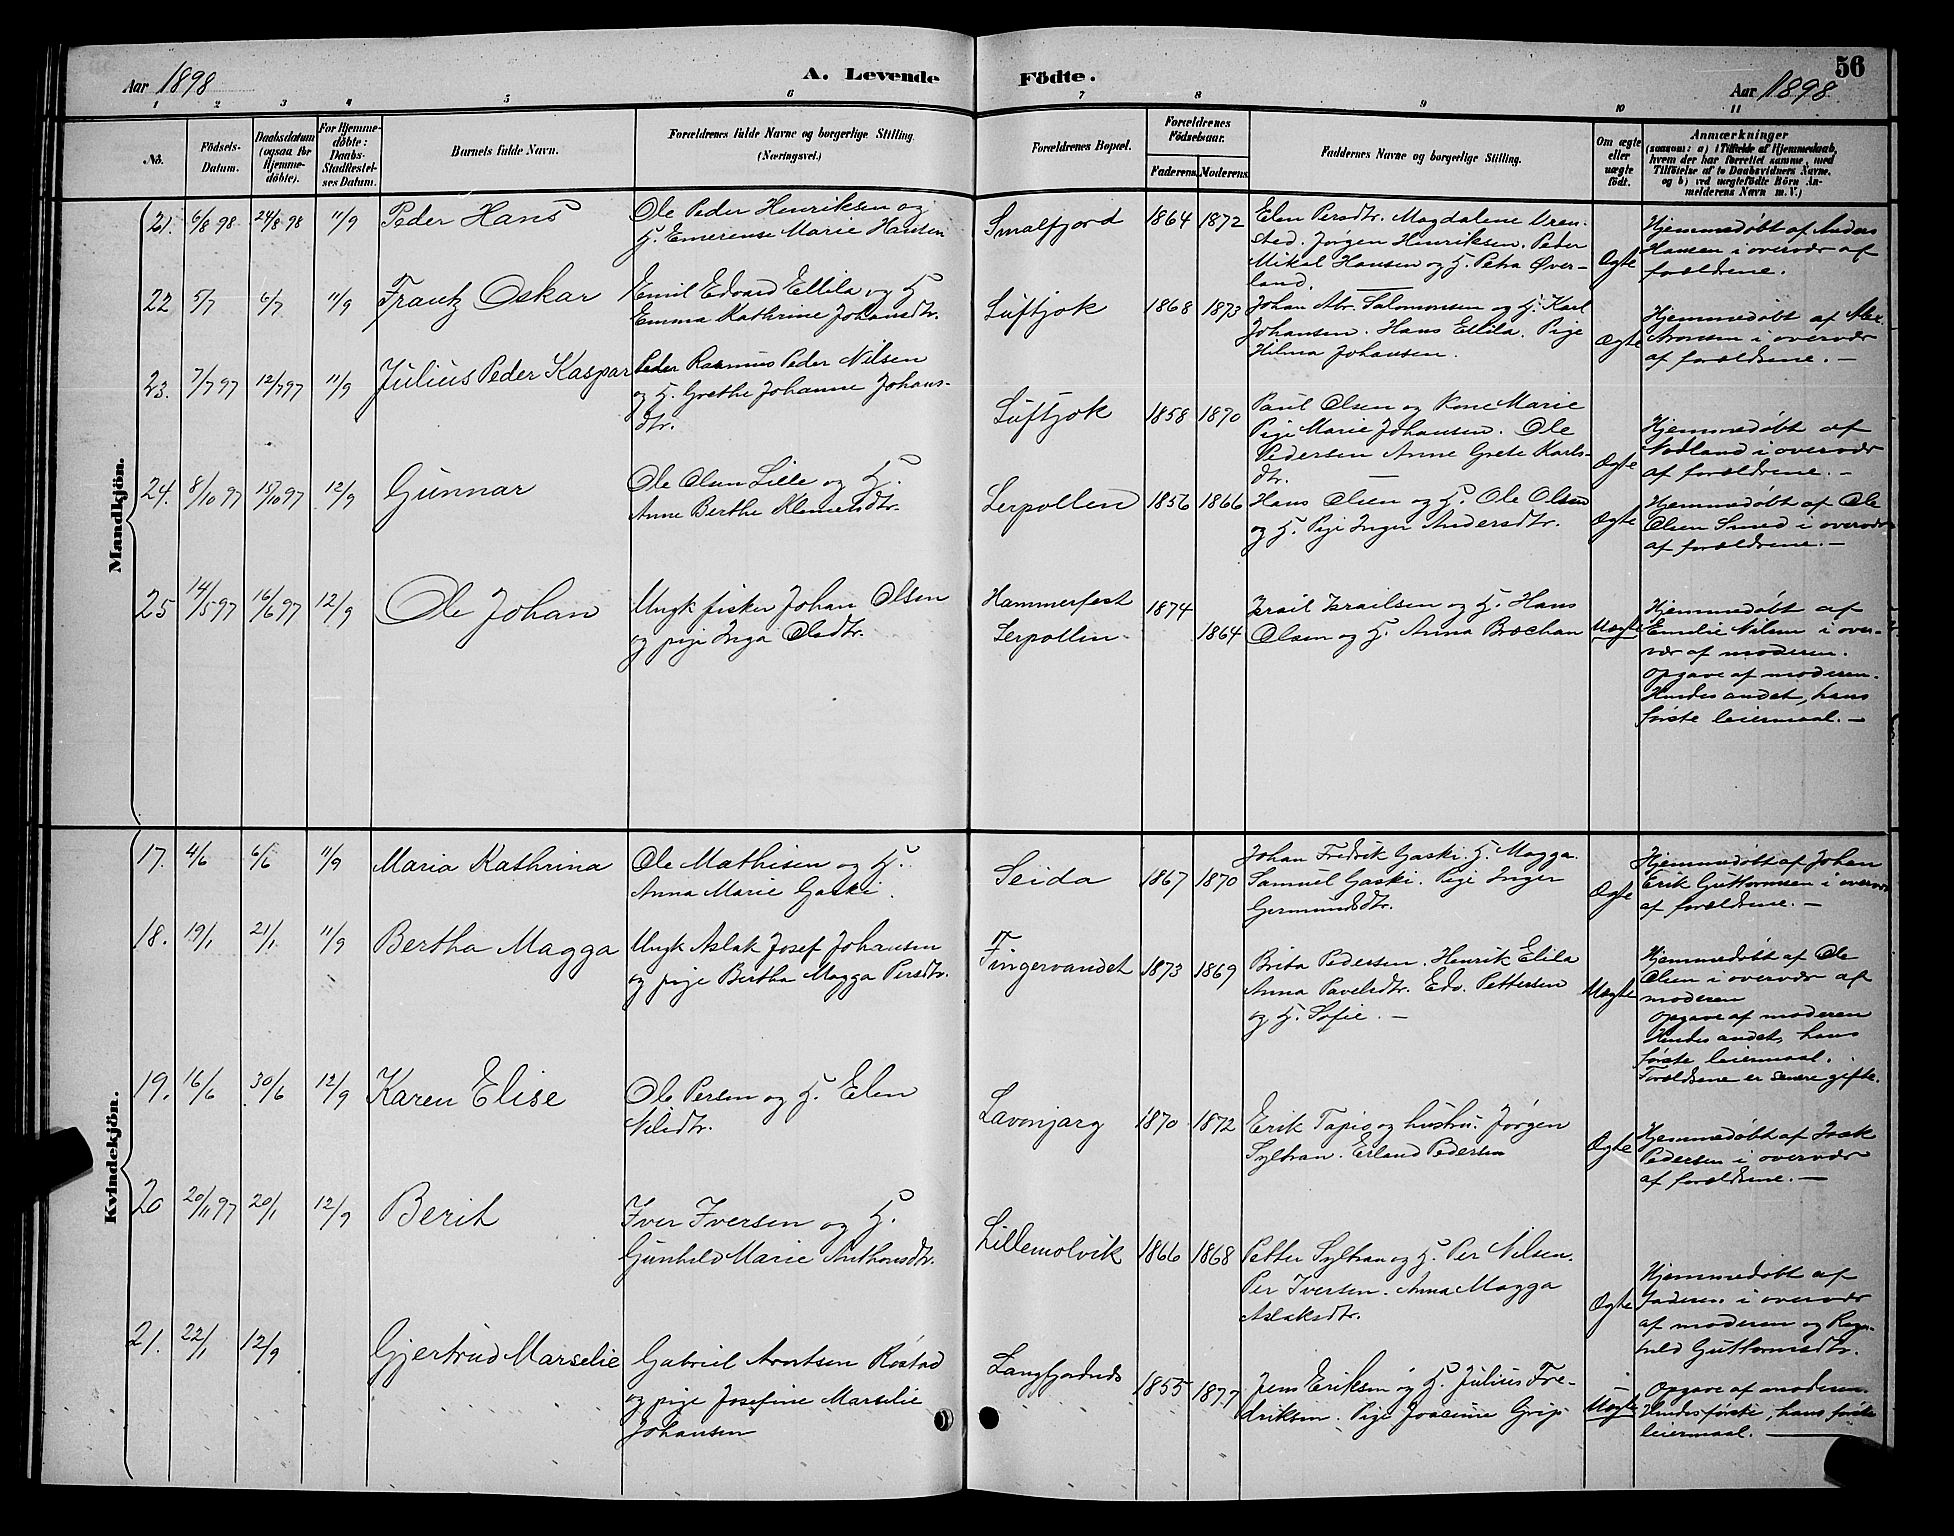 Aar 1898
A. Levende
Födte.
56
Aar 1898
1 2 3 4 5 6 7 8 9 10 11
No.
Födsels-
Datum.
Daabsdatum
(ogsaa for
Hjemme-
döbte).
For Hjemme-
döbte:
Daabs-
Stadfæstel-
ses Datum.
Barnets fulde Navn.
Forældrenes fulde Navne og borgerlige Stilling.
(Næringsvei.)
Forældrenes Bopæl.
Forældrenes
Födselsaar.
Faderens. Moderens.
Faddernes Navne og borgerlige Stilling.
Om ægte
eller
uægte
födt.
Anmærkninger
(saasom: a) i Tilfælde af Hjemmedaab,
hvem der har forrettet samme, med
Tilföielse af to Daabsvidners Navne,
og b) ved uægtefödte Börn An-
melderens Navn m. V.)
Mandkjön.
21. 6/8 98 24/8 98 11/9 Peder Hans
Ole Peder Henriksen og
H. Emerense Marie Hansen
Smalfjord 1864 1872
Elen Persdtr. Magdalene
sted. Jørgen Henriksen. Peder
Mikal Hansen og H. Petra Øver-
land.
Ægte
Hjemmedøbt af Anders
Hansen i overvær af
forældrene.
22 5/7 6/7 11/9 Frantz Oskar
Emil Edvard Ellila og H
Emma Kathrine Johansdtr.
Luftjok 1868 1873
Johan Abr. Salomonsen og H. Karl
Johansen. Hans Ellila. Pige
Hilma Johansen.
Ægte
Hjemmedøbt af
Aronsen i overvær
af forældrene. —
23. 7/7 97 12/7 97 11/9 Julius Peder Kaspar
Peder Rasmus Peder Nilsen
og H. Grethe Johanne Johans-
dtr.
Luftjok 1858 1870
Paul Olsen og Kone Marie
Pige Marie Johansen. Ole
Pedersen Anne Grete Karls-
dtr.
Ægte
Hjemmedøbt af
Nodland i overvær
af forældrene. —
24. 8/10 97 18/10 97 12/9 Gunnar
Ole Olsen Lille og H.
Anne Berthe Klemetsdtr.
Lerpollen 1856 1866
Hans Olsen og H. Ole Olsen
og H. Pige Inger Andersdtr.
Ægte
Hjemmedøbt af Ole
Olsen Smed i overvær
af forældrene. —
25 14/5 97 16/6 97 12/9 Ole Johan
Ungk fisker Johan Olsen
og pige Inga Olsdtr.
Hammerfest 1874
Lerpollen. 1864
Israil Israilsen og H. Hans
Olsen og H. Anna Brochan
Uægte
Hjemmedøbt af
Emilie Nilsen i over-
vær af moderen.
Opgave af moderen.
Hendes andet, hans
første leiermaal. —
Kvindekjön.
17. 4/6 6/6 11/9 Maria Kathrina
Ole Mathisen og H.
Anna Marie Gaski.
Seida 1867 1870
Johan Fredrik Gaski. H. Magga.
Samuel Gaski. Pige Inger
Germundsdtr.
Ægte
Hjemmedøbt af Johan
Erik Guttormsen i overvær
af forældrene. —
18. 19/1 21/1 11/9 Bertha Magga
Ungk Aslak Josef Johansen
og pige Bertha Magga Persdtr.
Fingervandet 1873 1869
Brita Pedersen. Henrik Elila
Anna Pavelsdtr. Edv. Pettersen
og H. Sofie. —
Uægte
Hjemmedøbt af Ole
Olsen i overvær af
moderen
Opgave af moderen
Hendes andet, hans
første leiermaal.
Forældrene er senere gifte.
19. 16/6 30/6 12/9 Karen Elise
Ole Persen og H. Elen
Nilsdtr.
Lavonjarg 1870 1872
Erik Tapio og hustru. Jørgen
Syltran. Erland Pedersen
Ægte
Hjemmedøbt af Isak
Pedersen i overvær
af forældrene. —
20 20/11 97 20/1 12/9 Berit
Iver Iversen og H.
Gunhild Marie Anthonsdtr.
Lillemolvik 1866 1868
Petter Syltran og H. Per Nilsen.
Per Iversen. Anna Magga
Aslaksdtr.
Ægte
Hjemmedøbt af
faderen i overvær
af moderen og Ragn-
hild Guttormsdtr.
21. 22/1 12/9 Gjertrud Marselie
Gabriel Arntsen Rostad
og pige Josefine Marselie
Johansen
Langfjordnæs 1855 1877
Jens Eriksen og H. Julius Fre-
driksen. Pige Joacime Grip
Uægte
Opgave af moderen.
Hendes første, hans første
leiermaal. —